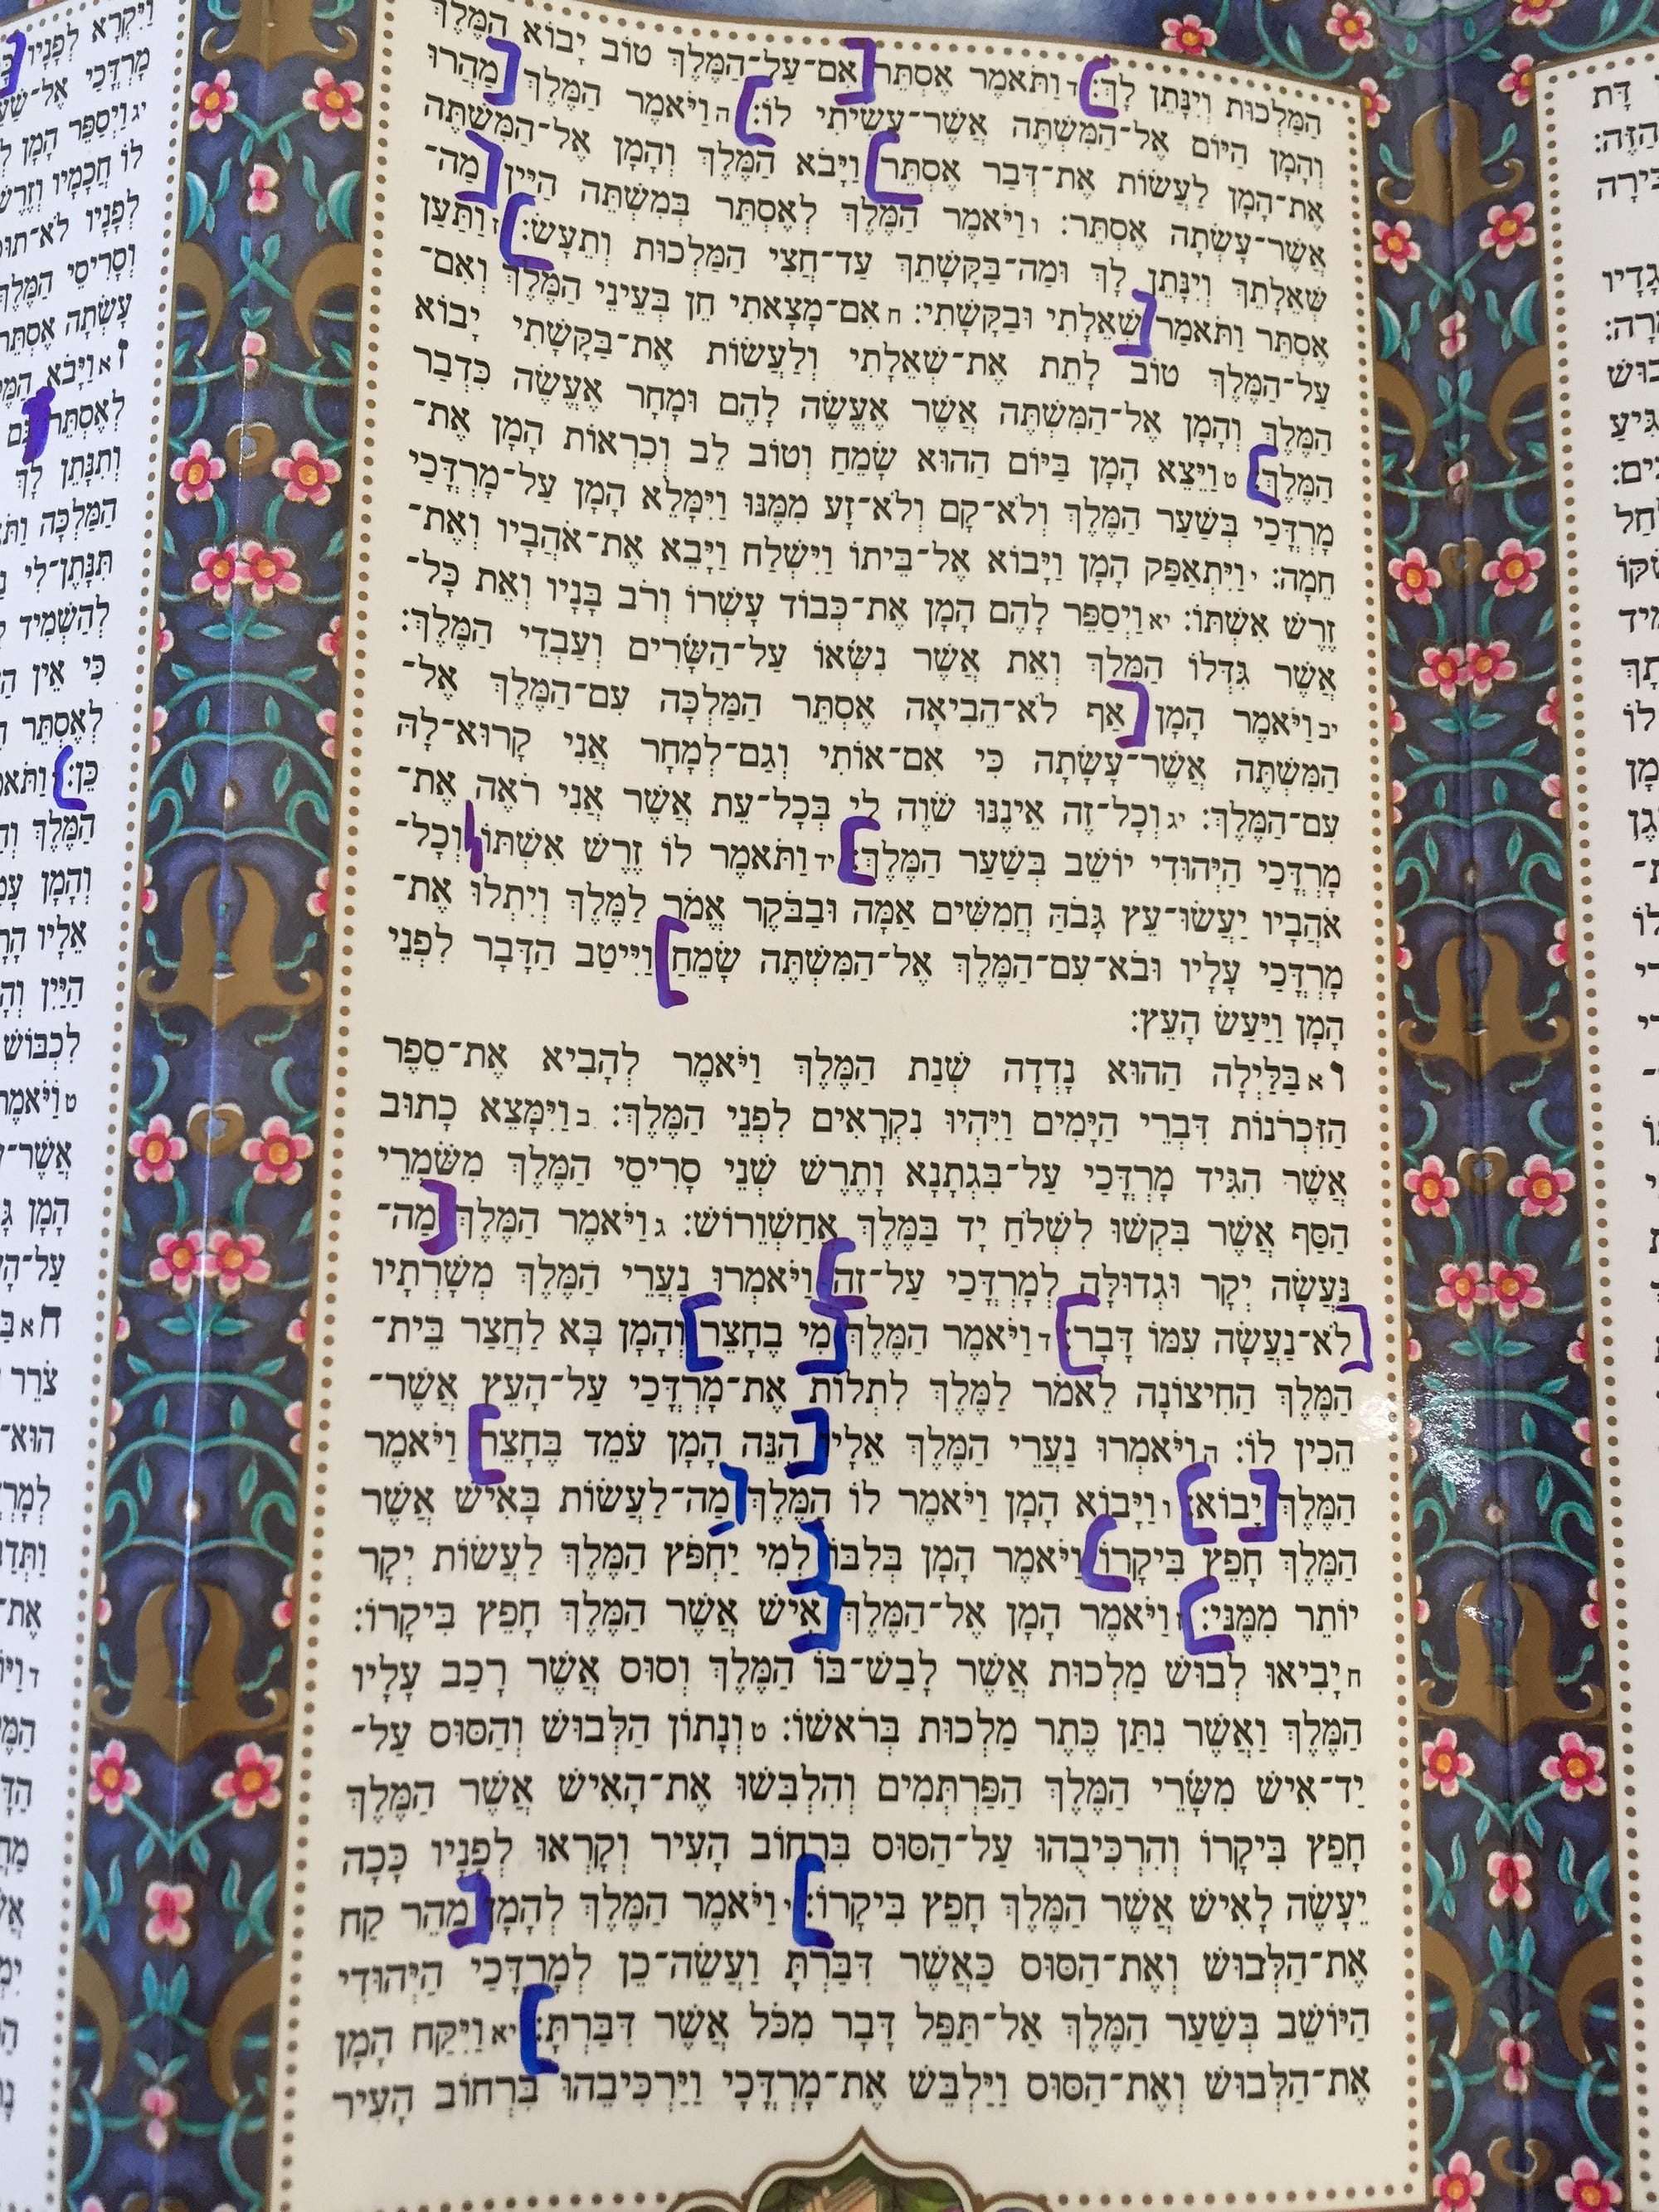 דָּת
הַזֶּה:
לוֹ
הַמַּלְכוּת וְיִנָּתֵן לָךְ: ד וַתֹּאמֶר אֶסְתֵּר אִם־עַל־הַמֶּלֶךְ טוֹב יָבוֹא הַמֶּלֶךְ
וְהָמָן הַיּוֹם אֶל־הַמִּשְׁתֶּה אֲשֶׁר־עָשִׂיתִי לוֹ: ה וַיֹּאמֶר הַמֶּלֶךְ מַהֲרוּ
אֶת־הָמָן לַעֲשׂוֹת אֶת־דְּבַר אֶסְתֵּר וַיָּבֹא הַמֶּלֶךְ וְהָמָן אֶל־הַמִּשְׁתֶּה
אֲשֶׁר־עָשְׂתָה אֶסְתֵּר: ו וַיֹּאמֶר הַמֶּלֶךְ לְאֶסְתֵּר בְּמִשְׁתֵּה הַיַּיִן מַה־
שְּׁאֵלָתֵךְ וְיִנָּתֵן לָךְ וּמַה־בַּקָּשָׁתֵךְ עַד־חֲצִי הַמַּלְכוּת וְתֵעָשׂ: ז וַתַּעַן
אֶסְתֵּר וַתֹּאמַר שְׁאֵלָתִי וּבַקָּשָׁתִי: ח אִם־מָצָאתִי חֵן בְּעֵינֵי הַמֶּלֶךְ וְאִם־
עַל־הַמֶּלֶךְ טוֹב לָתֵת אֶת־שְׁאֵלָתִי וְלַעֲשׂוֹת אֶת־בַּקָּשָׁתִי יָבוֹא
הַמֶּלֶךְ וְהָמָן אֶל־הַמִּשְׁתֶּה אֲשֶׁר אֶעֱשֶׂה לָהֶם וּמָחָר אֶעֱשֶׂה כִּדְבַר
הַמֶּלֶךְ: ט וַיֵּצֵא הָמָן בַּיּוֹם הַהוּא שָׂמֵחַ וְטוֹב לֵב וְכִרְאוֹת הָמָן אֶת־
מָרְדֳּכַי בְּשַׁעַר הַמֶּלֶךְ וְלֹא־קָם וְלֹא־זָע מִמֶּנּוּ וַיִּמָּלֵא הָמָן עַל־מָרְדֳּכַי
חֵמָה: י וַיִּתְאַפַּק הָמָן וַיָּבוֹא אֶל־בֵּיתוֹ וַיִּשְׁלַח וַיָּבֵא אֶת־אֹהֲבָיו וְאֶת־
זֶרֶשׁ אִשְׁתּוֹ: יא וַיְסַפֵּר לָהֶם הָמָן אֶת־כְּבוֹד עָשְׁרוֹ וְרֹב בָּנָיו וְאֵת כָּל־
אֲשֶׁר גִּדְּלוֹ הַמֶּלֶךְ וְאֵת אֲשֶׁר נִשְּׂאוֹ עַל־הַשָּׂרִים וְעַבְדֵי הַמֶּלֶךְ:
יב וַיֹּאמֶר הָמָן אַף לֹא־הֵבִיאָה אֶסְתֵּר הַמַּלְכָּה עִם־הַמֶּלֶךְ אֶל־
הַמִּשְׁתֶּה אֲשֶׁר־עָשָׂתָה כִּי אִם־אוֹתִי וְגַם־לְמָחָר אֲנִי קָרוּא־לָהּ
עִם־הַמֶּלֶךְ: יג וְכָל־זֶה אֵינֶנּוּ שֹׁוֶה לִי בְּכָל־עֵת אֲשֶׁר אֲנִי רֹאֶה אֶת־
מָרְדֳּכַי הַיְּהוּדִי יוֹשֵׁב בְּשַׁעַר הַמֶּלֶךְ: יד וַתֹּאמֶר לוֹ זֶרֶשׁ אִשְׁתּוֹ וְכָל־
אֹהֲבָיו יַעֲשׂוּ־עֵץ גָּבֹהַּ חֲמִשִּׁים אַמָּה וּבַבֹּקֶר אֱמֹר לַמֶּלֶךְ וְיִתְלוּ אֶת־
מָרְדֳּכַי עָלָיו וּבֹא־עִם־הַמֶּלֶךְ אֶל־הַמִּשְׁתֶּה שָׂמֵחַ וַיִּיטַב הַדָּבָר לִפְנֵי
הָמָן וַיַּעַשׂ הָעֵץ:
ו א בַּלַּיְלָה הַהוּא נָדְדָה שְׁנַת הַמֶּלֶךְ וַיֹּאמֶר לְהָבִיא אֶת־סֵפֶר
הַזִּכְרֹנוֹת דִּבְרֵי הַיָּמִים וַיִּהְיוּ נִקְרָאִים לִפְנֵי הַמֶּלֶךְ: ב וַיִּמָּצֵא כָתוּב
אֲשֶׁר הִגִּיד מָרְדֳּכַי עַל־בִּגְתָנָא וָתֶרֶשׁ שְׁנֵי סָרִיסֵי הַמֶּלֶךְ מִשֹּׁמְרֵי
הַסַּף אֲשֶׁר בִּקְשׁוּ לִשְׁלֹחַ יָד בַּמֶּלֶךְ אֲחַשְׁוֵרוֹשׁ: ג וַיֹּאמֶר הַמֶּלֶךְ מַה־
נַּעֲשָׂה יְקָר וּגְדוּלָּה לְמָרְדֳּכַי עַל־זֶה וַיֹּאמְרוּ נַעֲרֵי הַמֶּלֶךְ מְשָׁרְתָיו
לֹא־נַעֲשָׂה עִמּוֹ דָּבָר: ד וַיֹּאמֶר הַמֶּלֶךְ מִי בֶחָצֵר וְהָמָן בָּא לַחֲצַר בֵּית־
הַמֶּלֶךְ הַחִיצוֹנָה לֵאמֹר לַמֶּלֶךְ לִתְלוֹת אֶת־מָרְדֳּכַי עַל־הָעֵץ אֲשֶׁר־
הֵכִין לוֹ: ה וַיֹּאמְרוּ נַעֲרֵי הַמֶּלֶךְ אֵלָיו הִנֵּה הָמָן עֹמֵד בֶּחָצֵר וַיֹּאמֶר
הַמֶּלֶךְ יָבוֹא: ו וַיָּבוֹא הָמָן וַיֹּאמֶר לוֹ הַמֶּלֶךְ מַה־לַעֲשׂוֹת בָּאִישׁ אֲשֶׁר
הַמֶּלֶךְ חָפֵץ בִּיקָרוֹ וַיֹּאמֶר הָמָן בְּלִבּוֹ לְמִי יַחְפֹּץ הַמֶּלֶךְ לַעֲשׂוֹת יְקָר
יוֹתֵר מִמֶּנִּי: וַיֹּאמֶר הָמָן אֶל־הַמֶּלֶךְ אִישׁ אֲשֶׁר הַמֶּלֶךְ חָפֵץ בִּיקָרוֹ:
ח יָבִיאוּ לְבוּשׁ מַלְכוּת אֲשֶׁר לָבַשׁ־בּוֹ הַמֶּלֶךְ וְסוּס אֲשֶׁר רָכַב עָלָיו
הַמֶּלֶךְ וַאֲשֶׁר נִתַּן כֶּתֶר מַלְכוּת בְּרֹאשׁוֹ: ט וְנָתוֹן הַלְּבוּשׁ וְהַסּוּס עַל־
יַד־אִישׁ מִשָּׂרֵי הַמֶּלֶךְ הַפַּרְתְּמִים וְהִלְבִּשׁוּ אֶת־הָאִישׁ אֲשֶׁר הַמֶּלֶךְ
חָפֵץ בִּיקָרוֹ וְהִרְכִּיבֻהוּ עַל־הַסּוּס בִּרְחוֹב הָעִיר וְקָרְאוּ לְפָנָיו כָּכָה
יֵעָשֶׂה לָאִישׁ אֲשֶׁר הַמֶּלֶךְ חָפֵץ בִּיקָרוֹ: י וַיֹּאמֶר הַמֶּלֶךְ לְהָמָן מַהֵר קַח
אֶת־הַלְּבוּשׁ וְאֶת־הַסּוּס כַּאֲשֶׁר דִּבַּרְתָּ וַעֲשֵׂה־כֵן לְמָרְדֳּכַי הַיְּהוּדִי
הַיּוֹשֵׁב בְּשַׁעַר הַמֶּלֶךְ אַל־תַּפֵּל דָּבָר מִכֹּל אֲשֶׁר דִּבַּרְתָּ: יא וַיִּקַּח הָמָן
אֶת־הַלְּבוּשׁ וְאֶת־הַסּוּס וַיַּלְבֵּשׁ אֶת־מָרְדֳּכָי וַיַּרְכִּיבֵהוּ בִּרְחוֹב הָעִיר
וַיִּקְרָא לְפָנָיו
מָרְדֳּכַי אֶל־
יג וַיְסַפֵּר הָמָן
לוֹ חֲכָמָיו
לְפָנָיו לֹא־
וְסָרִיסֵי הַמֶּלֶךְ
עָשְׂתָה אֶסְתֵּר
ז א וַיָּבֹא
לְאֶסְתֵּר גַּם
וְתִנָּתֵן לָךְ
הַמַּלְכָּה
תִּנָּתֶן־לִי
לְהַשְׁמִיד
כִּי אֵין
לְאֶסְתֵּר
כֵּן:
הַמֶּלֶךְ
וְהָמָן
אֵלָיו
הַיַּיִן
לִכְבּוֹשׁ
ט וַיֹּאמֶר
אֲשֶׁר־
הָמָן
ח א
צֹרֵר
הוּא־